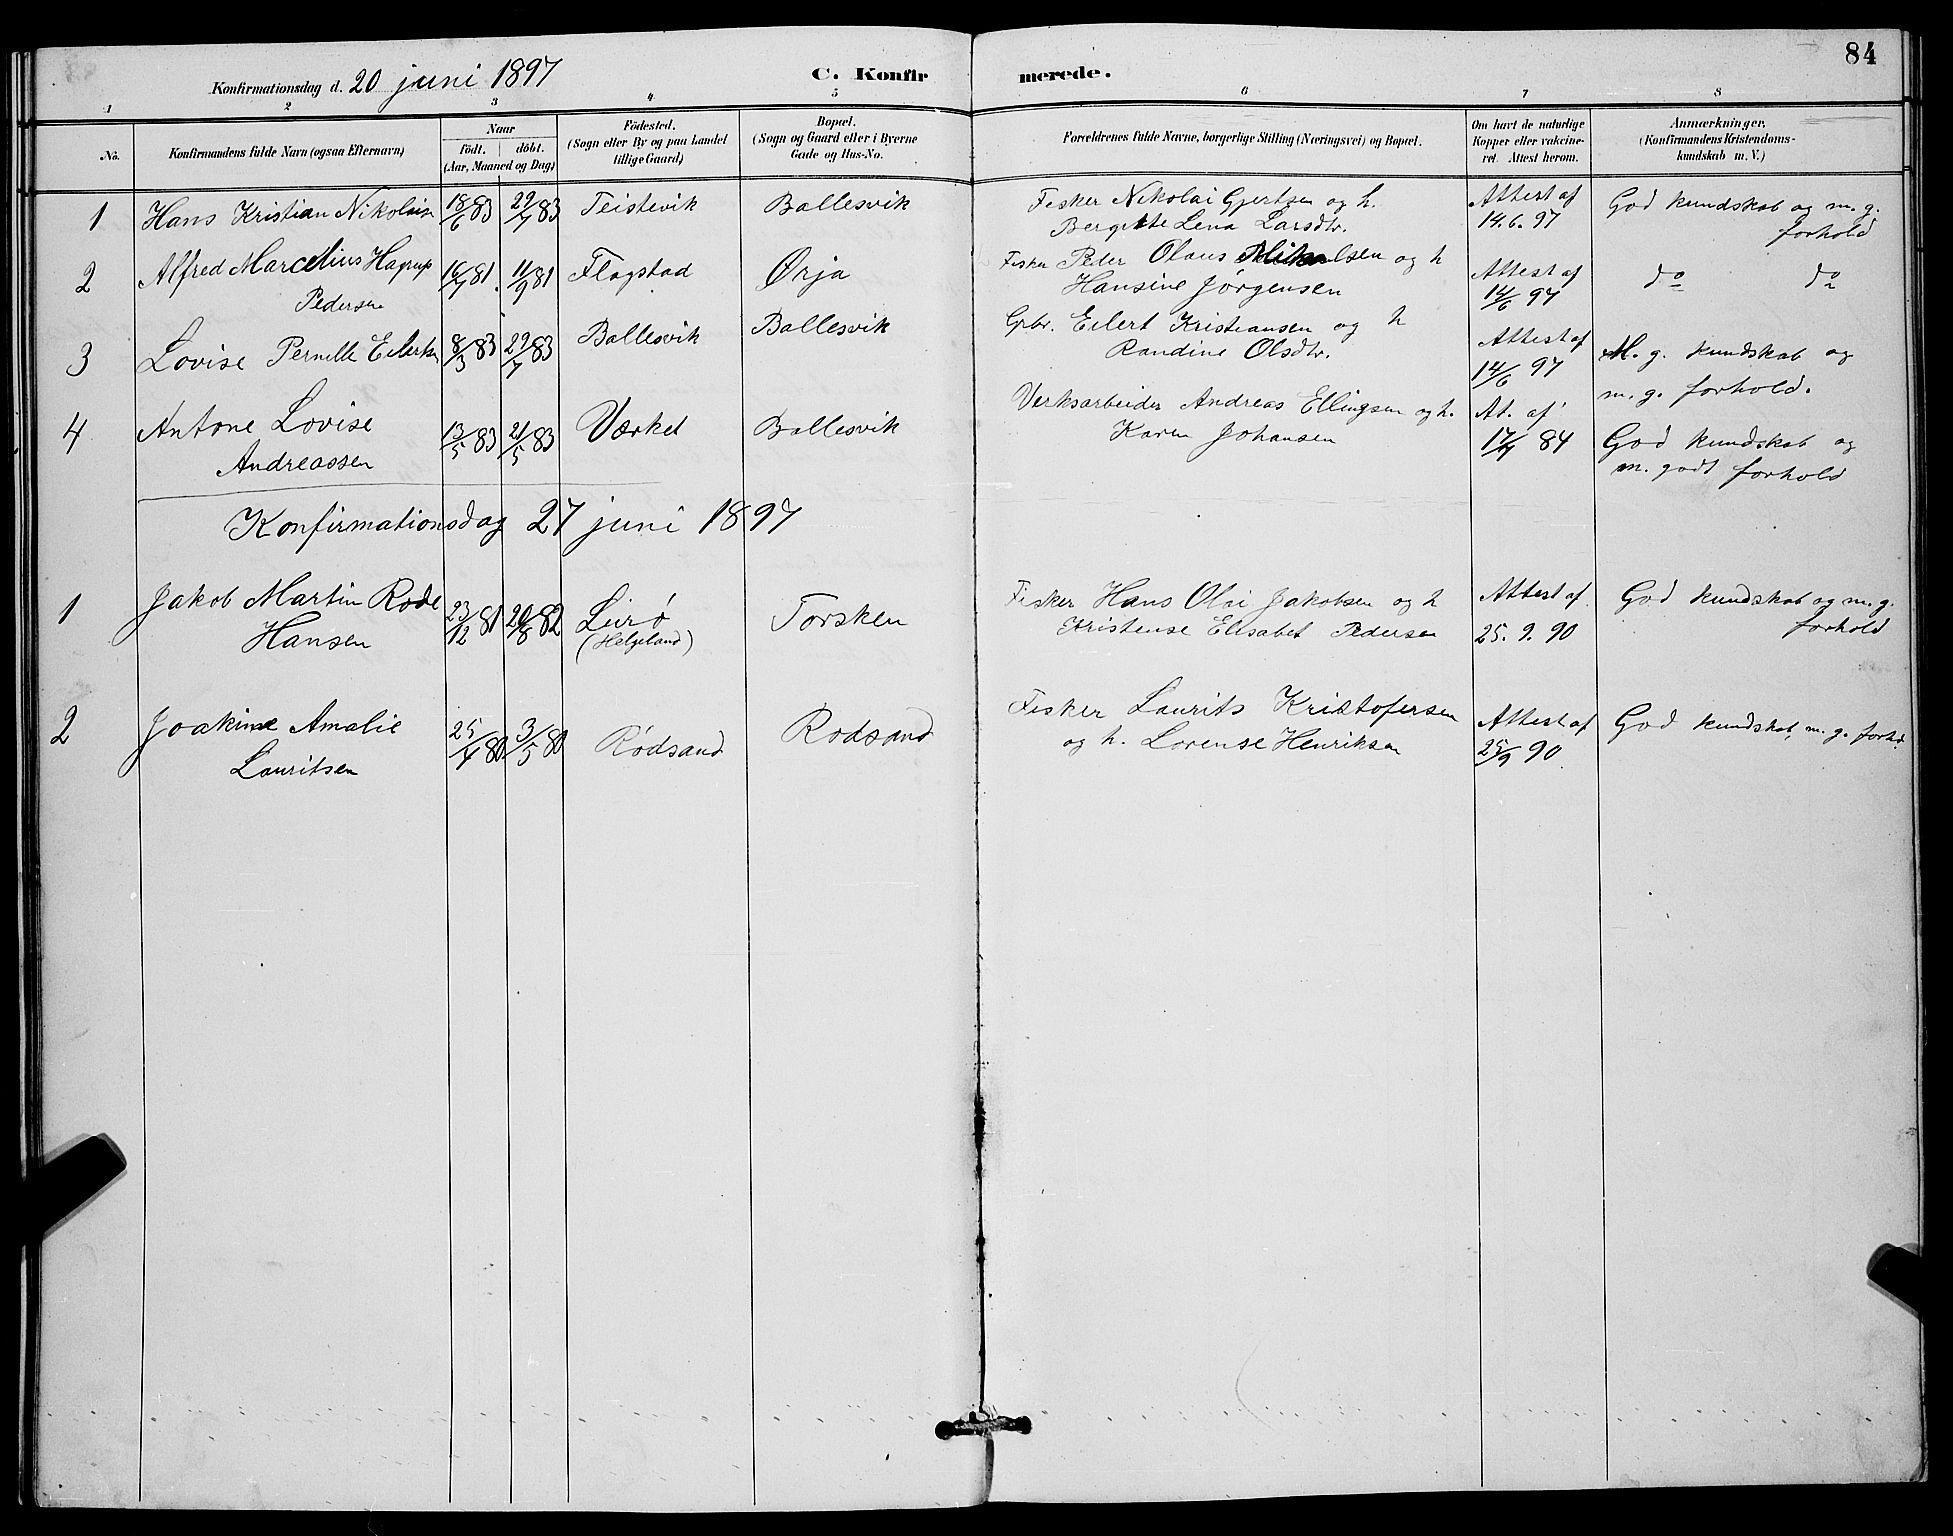 84
Konfirmationsdag d. 20 juni 1897
C. Konfirmerede.
1 2 3 4 5 6 7 8
No.
Konfirmandens fulde Navn (ogsaa Efternavn)
Naar
födt. döbt.
(Aar, Maaned og Dag)
Födested.
(Sogn eller By og paa Landet
tillige Gaard)
Bopæl.
(Sogn og Gaard eller i Byerne
Gade og Hus-No.
Forældrenes fulde Navne, borgerlige Stilling (Næringsvei) og Bopæl.
Om havt de naturlige
Kopper eller vakcine-
ret. Attest herom.
Anmærkninger.
(Konfirmandens Kristendoms-
kundskab m. V.)
1 Hans Kristian Nikolaisn 18/6 83 29/7 83 Teistevik Ballesvik Fisker Nikolai Gjertsen og h. Attest af God kundskab og m. g.
Bergitte Lena Larsdtr. 14.6.97 forhold
2 Alfred Marcelius Hagrup 16/7 81. 11/9 81 Flagstad Ørja Fisker Peder Olaus Mikalsen og h Attest af do do
Pedersen Hansine Jørgensen 14/6 97
3 Lovise Pernille Eilertsn 8/3 83 29/7 83 Ballesvik Ballesvik Grbr. Eilert Kristiansen og h Attest af M. g. kundskab og
Randine Olsdtr. 14/6 97 m. g. forhold.
4 Antone Lovise 13/5 83 21/5 83 Værket Ballesvik Verksarbeider Andreas Ellingsen og h. At. af God kundskab og
Andreassen Karen Johansen 17/7 84 m. godt forhold
Konfirmationsdag 27 juni 1897
1 Jakob Martin Rode 23/12 81 20/8 82 Lurø Torsken Fisker Hans Olai Jakobsen og h Attest af God kundskab og m. g.
Hansen (Helgeland) Kristense Elisabet Pedersen 25. 9. 90 forhold
2 Joakime Amalie 25/4 80 3/5 80 Rødsand Rodsand Fisker Laurits Kristofersen Attest af God kundskab, m. g. forhd.
Lauritsen og h. Lorense Henriksen 25/9 90